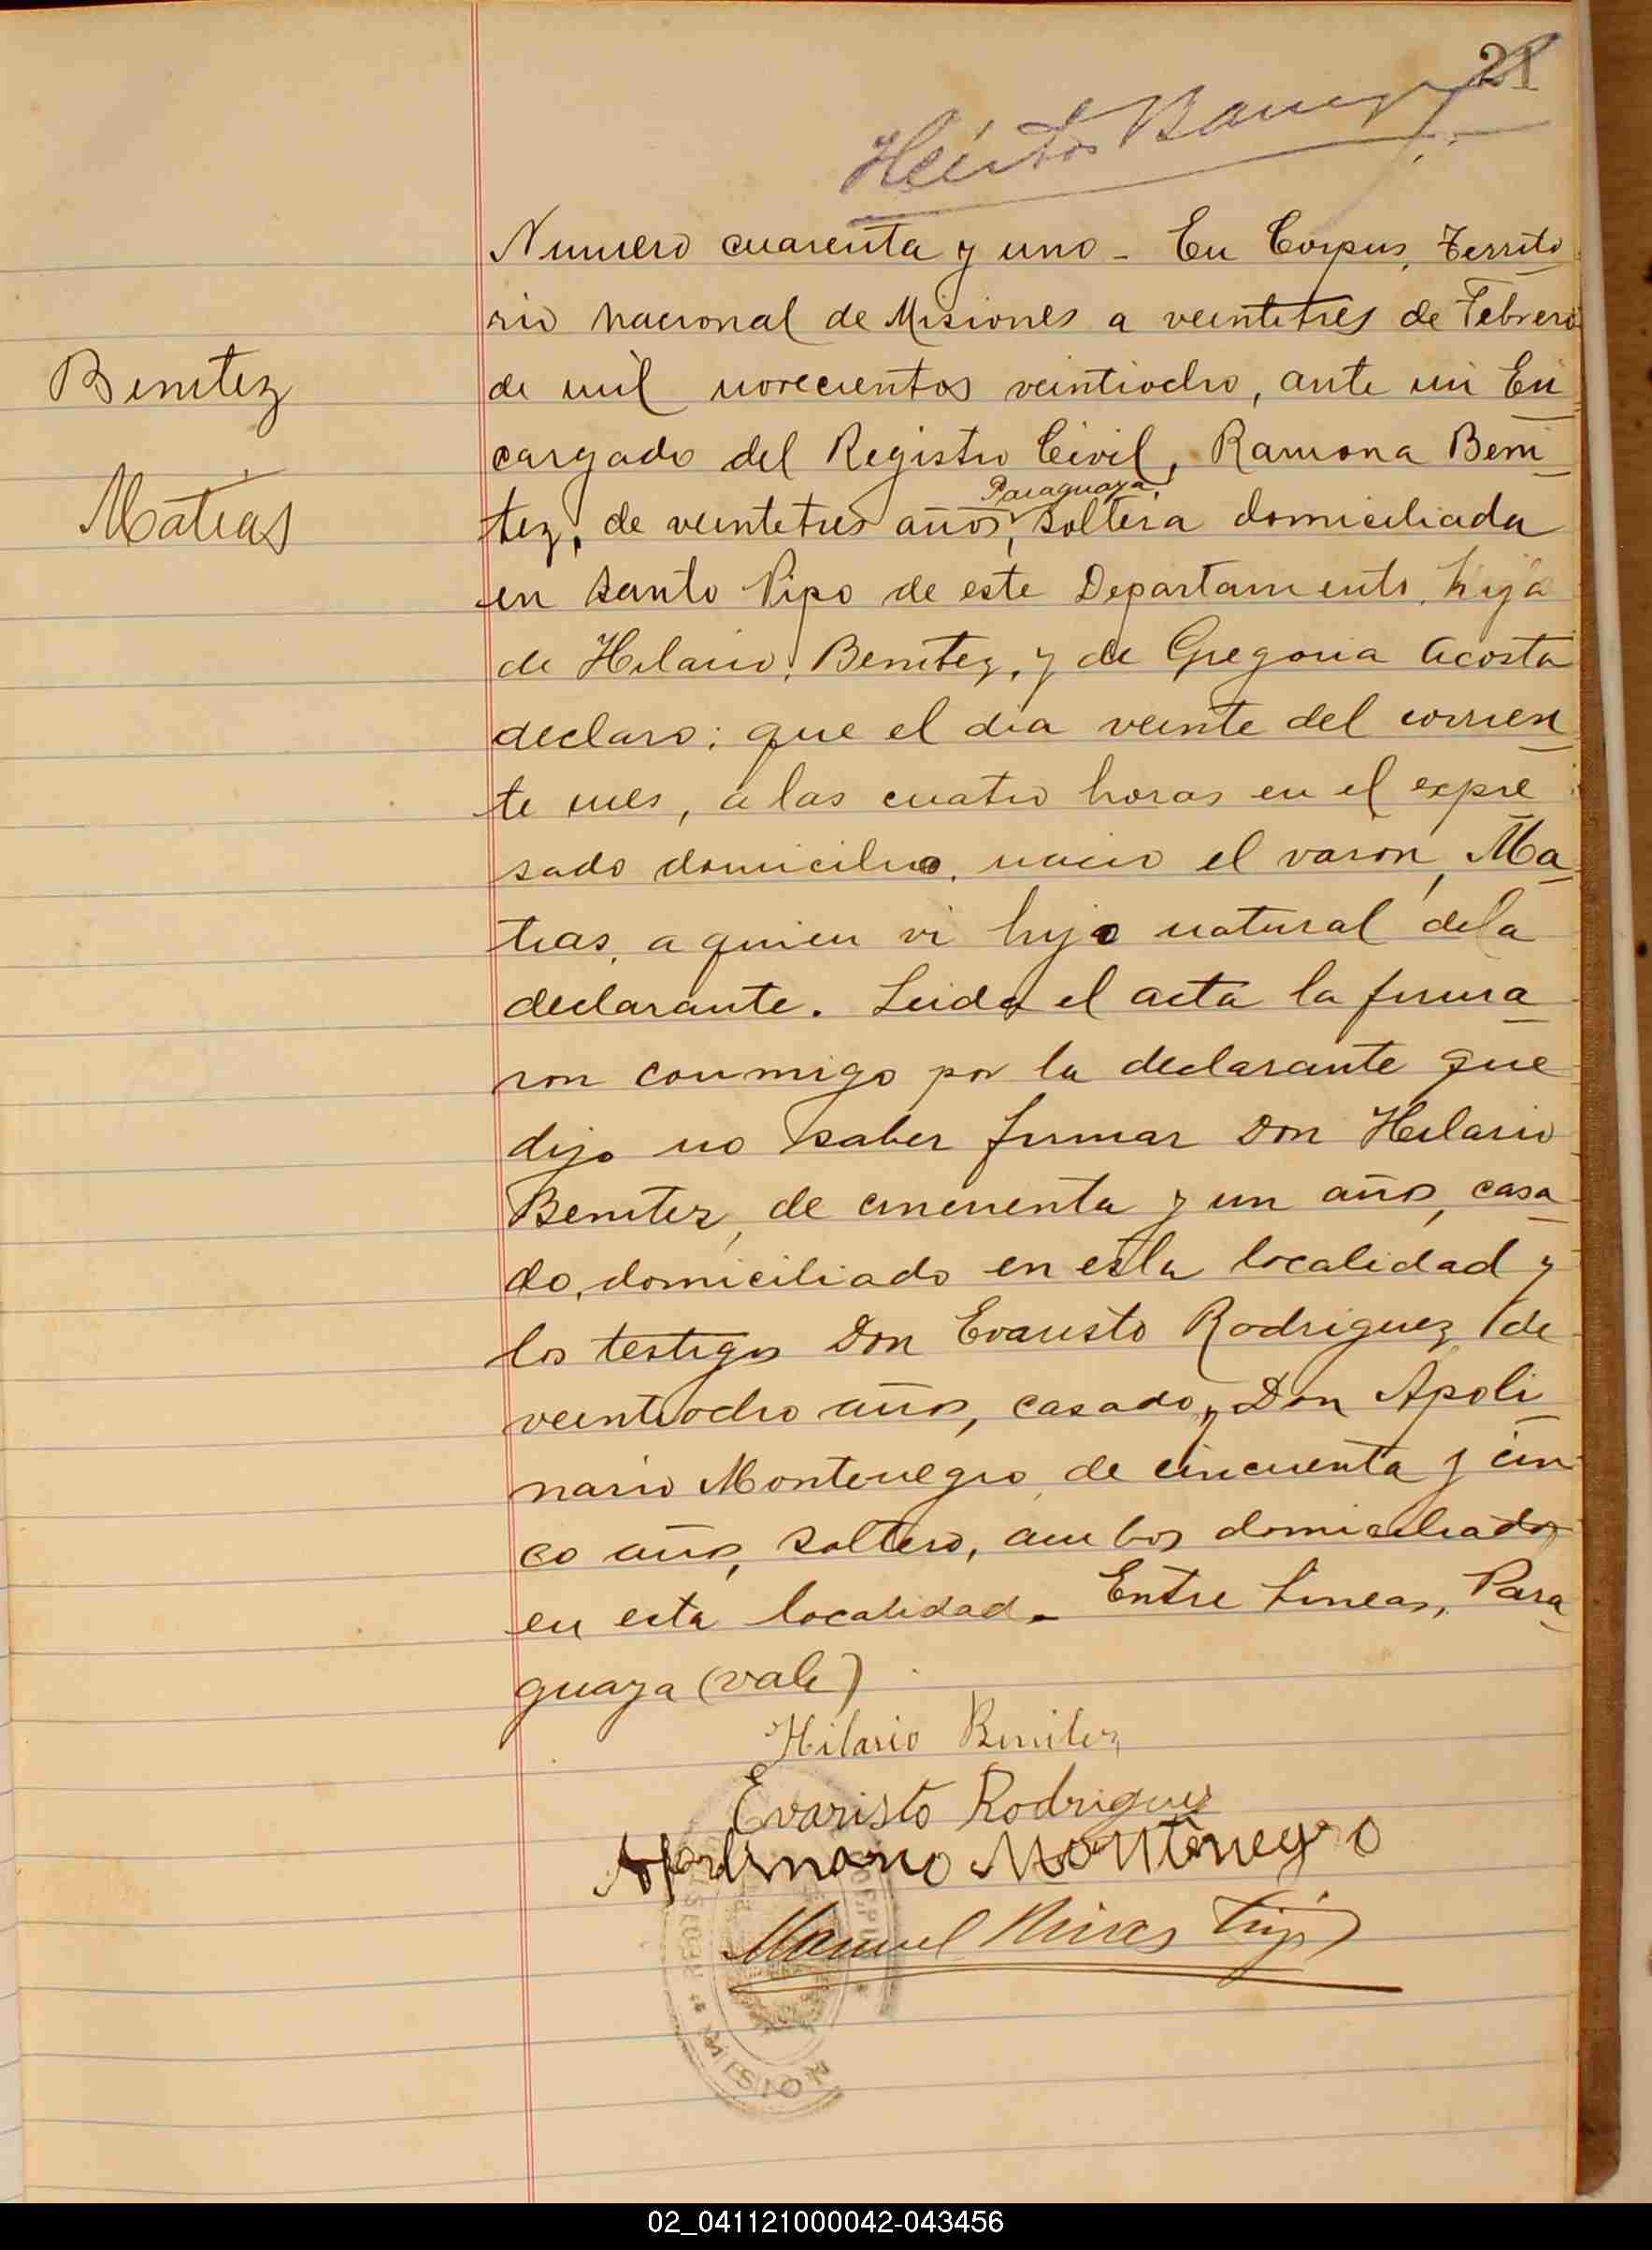 21
Numero cuarenta y uno - En Corpus, Territo
rio nacional de Misiones a veintetres de Febrero
Benitez
de mil novecientos veintiocho, ante mi En
cargado del Registro Civil, Ramona Beni
Paraguaya,
Matias
tez, de veintetres años, soltera domiciliada
en Santo Pipo de este Departamento, hija
de Hilario Benitez, y de Gregoria Acosta
declaro: que el dia veinte del corrien
te mes, a las cuatro horas en el expre
sado domicilio, nacio el varon, Ma
tias, a quien vi hijo natural de la
declarante. Leida el acta la firma
ron conmigo por la declarante que
dijo no saber firmar Don Hilario
Benitez, de cincuenta y un años, casa
do, domiciliado en esta localidad y
los testigos Don Evaristo Rodriguez de
veintiocho años, casado, y Don Apoli
nario Montenegro de cincuenta y cin
co años, soltero, ambos domiciliados
en esta localidad. Entre lineas, Para
guaya (vale)
Hilario Benitez
Evaristo Rodriguez
Apolinario Montenegro
Manuel
02_041121000042-043456